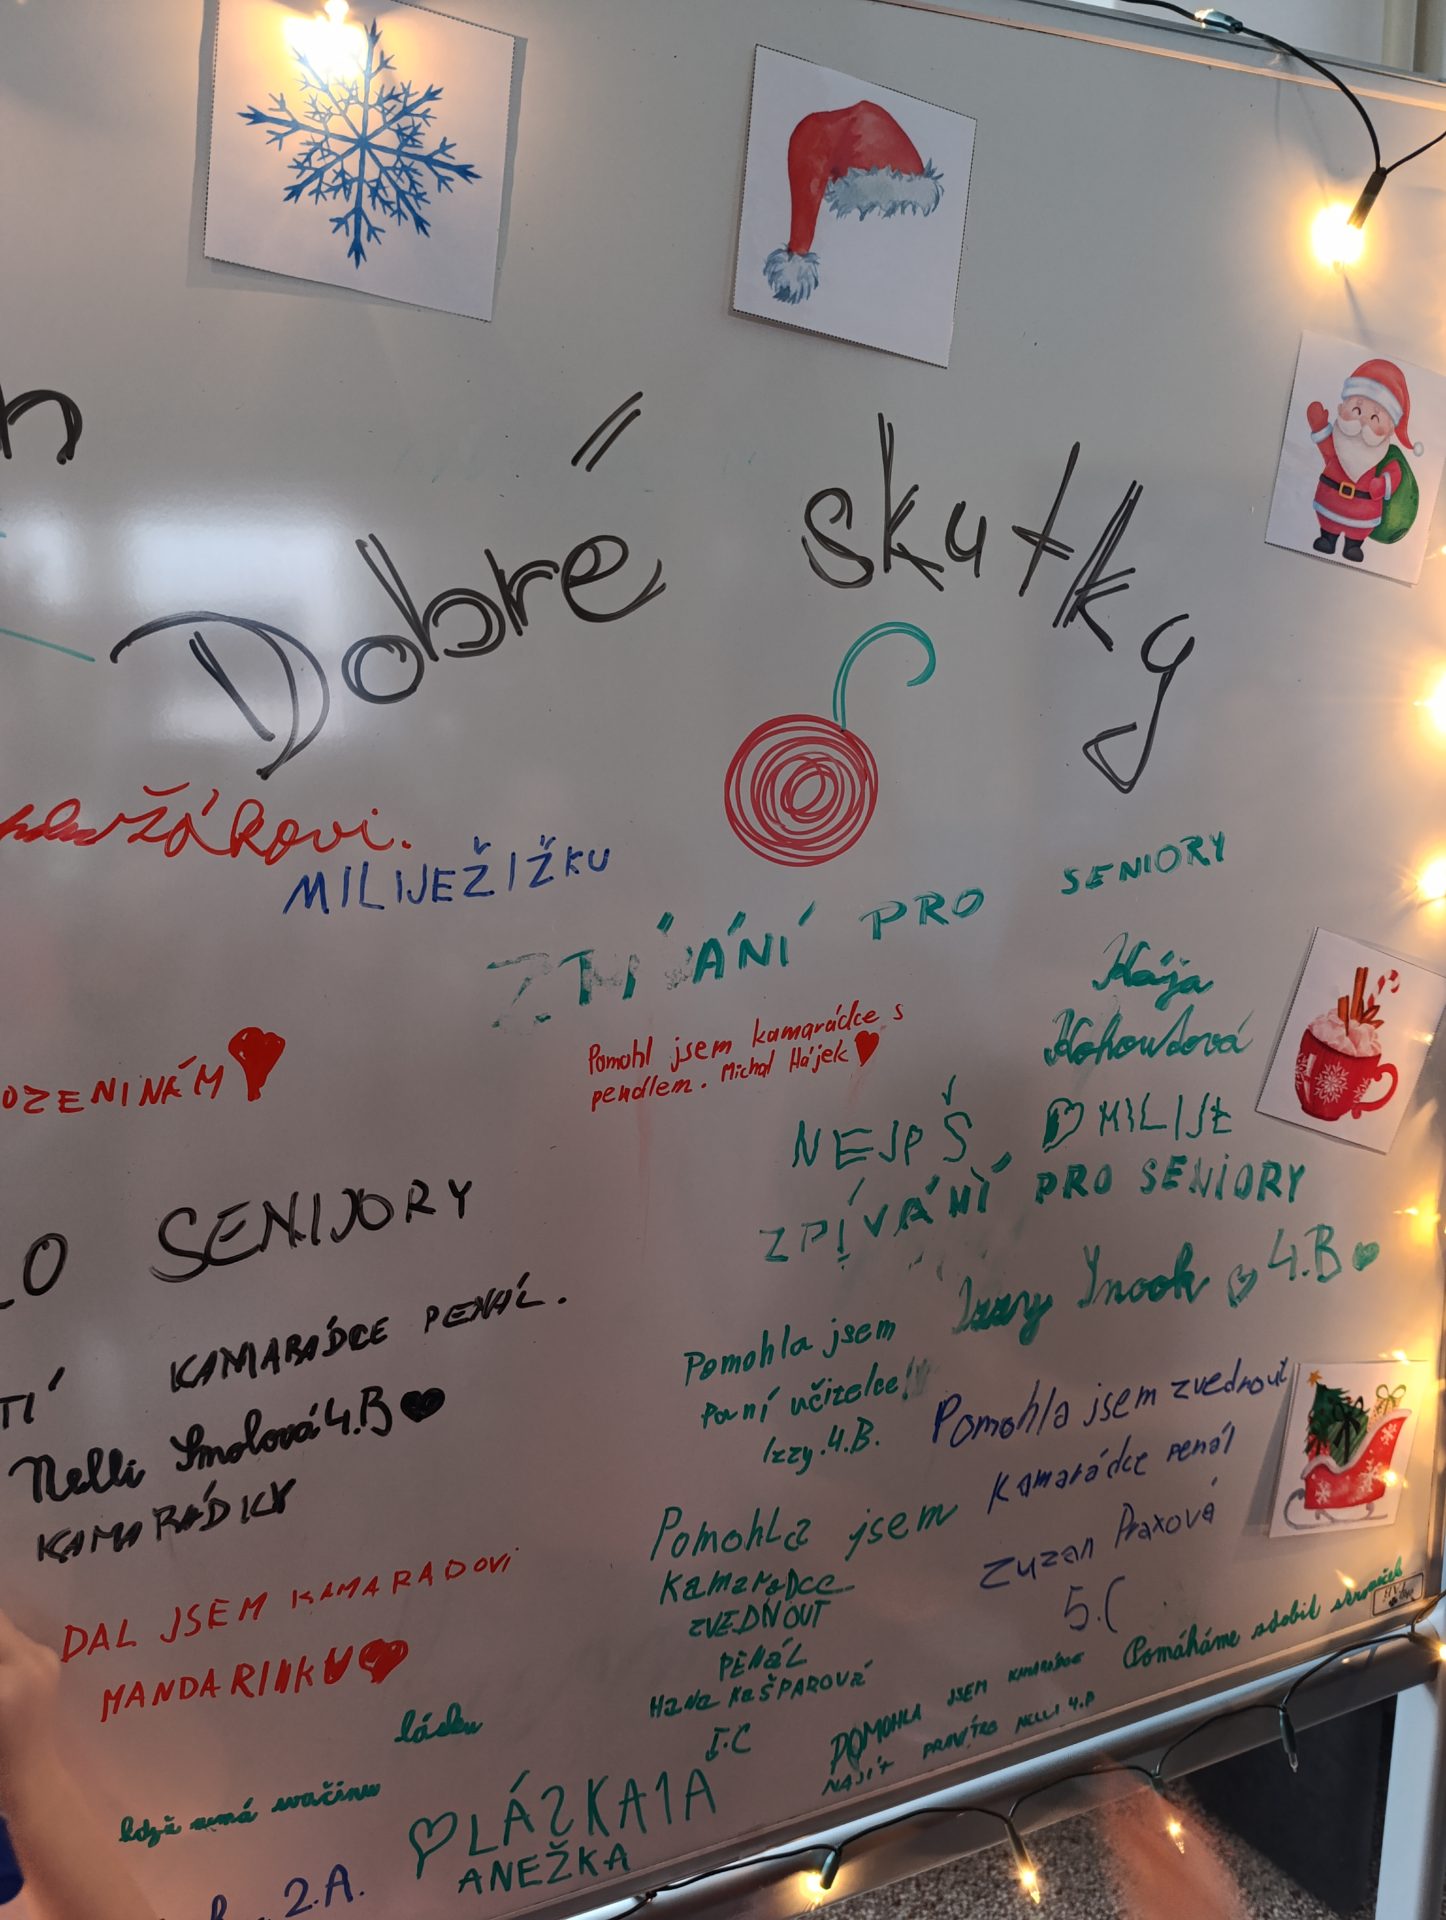 Dobré skutky
žákovi.
MILIJEŽIŽKU
PRO SENIORY
Kája
Kohoutová
OZENINÁM
Pomohl jsem kamarádce s
penálem. Michal Hájek
NEJPŠ
MILIJE
ZPÍVÁNÍ PRO SENIORY
LO SENIJORY
Izzy Snook 4.B
TÍ KAMARÁDCE PENÁL.
Nelli Smolová 4.B
KAMARÁDKY
Pomohla jsem
paní učitelce!
Izzy.4.B.
Pomohla jsem zvednout
kamarádce penál
Zuzan Praxová
5.C
Pomohla jsem
kamaradce
ZVEDNOUT
PENáL
HaNa KaŠPAROVá
I.C
DAL JSEM KAMARADOVI
MANDARINKU
lásku
když nemá svačinu
POMOHLA JSEM KAMARÁDCE
NAJÍT PRAVÍTKO NELLI 4.B
Pomáháme zdobit stromeček
LÁSKA 1A
ANEŽKA
2.A.